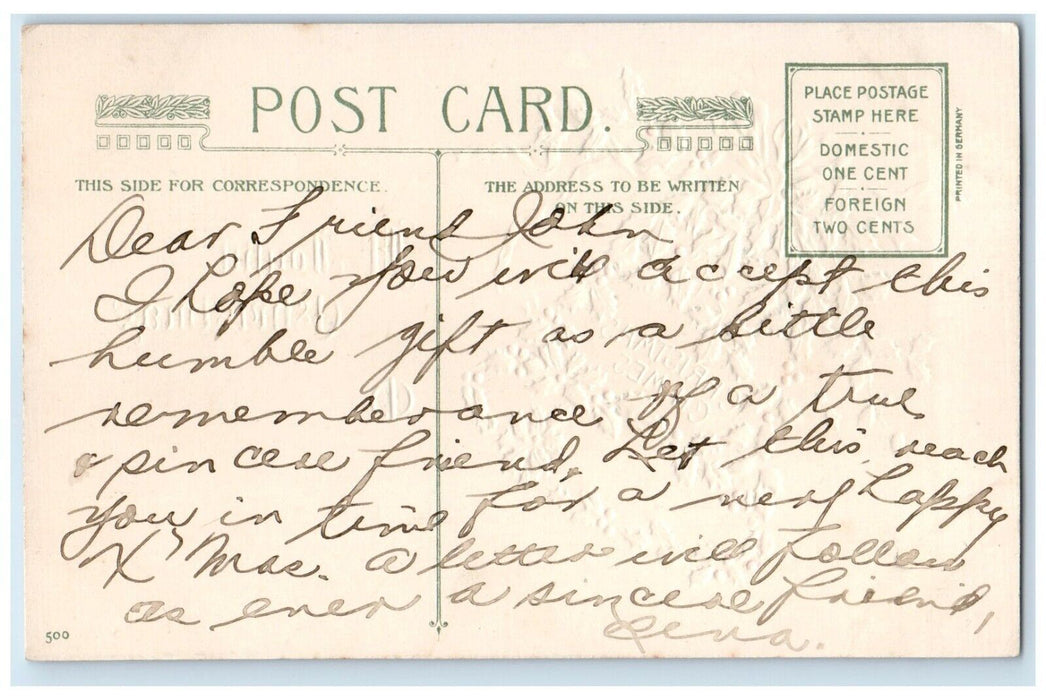 POST CARD.
THIS SIDE FOR CORRESPONDENCE.
THE ADDRESS TO BE WRITTEN
ON THIS SIDE.
PLACE POSTAGE
STAMP HERE
DOMESTIC
ONE CENT
FOREIGN
TWO CENTS
PRINTED IN GERMANY
Dear Friend John
I hope you will accept this
humble gift as a little
rememberance of a true
& sincere friend, Let this reach
you in time for a very happy
X'Mas. a letter will follow
as ever a sincere friend,
Lena.
500